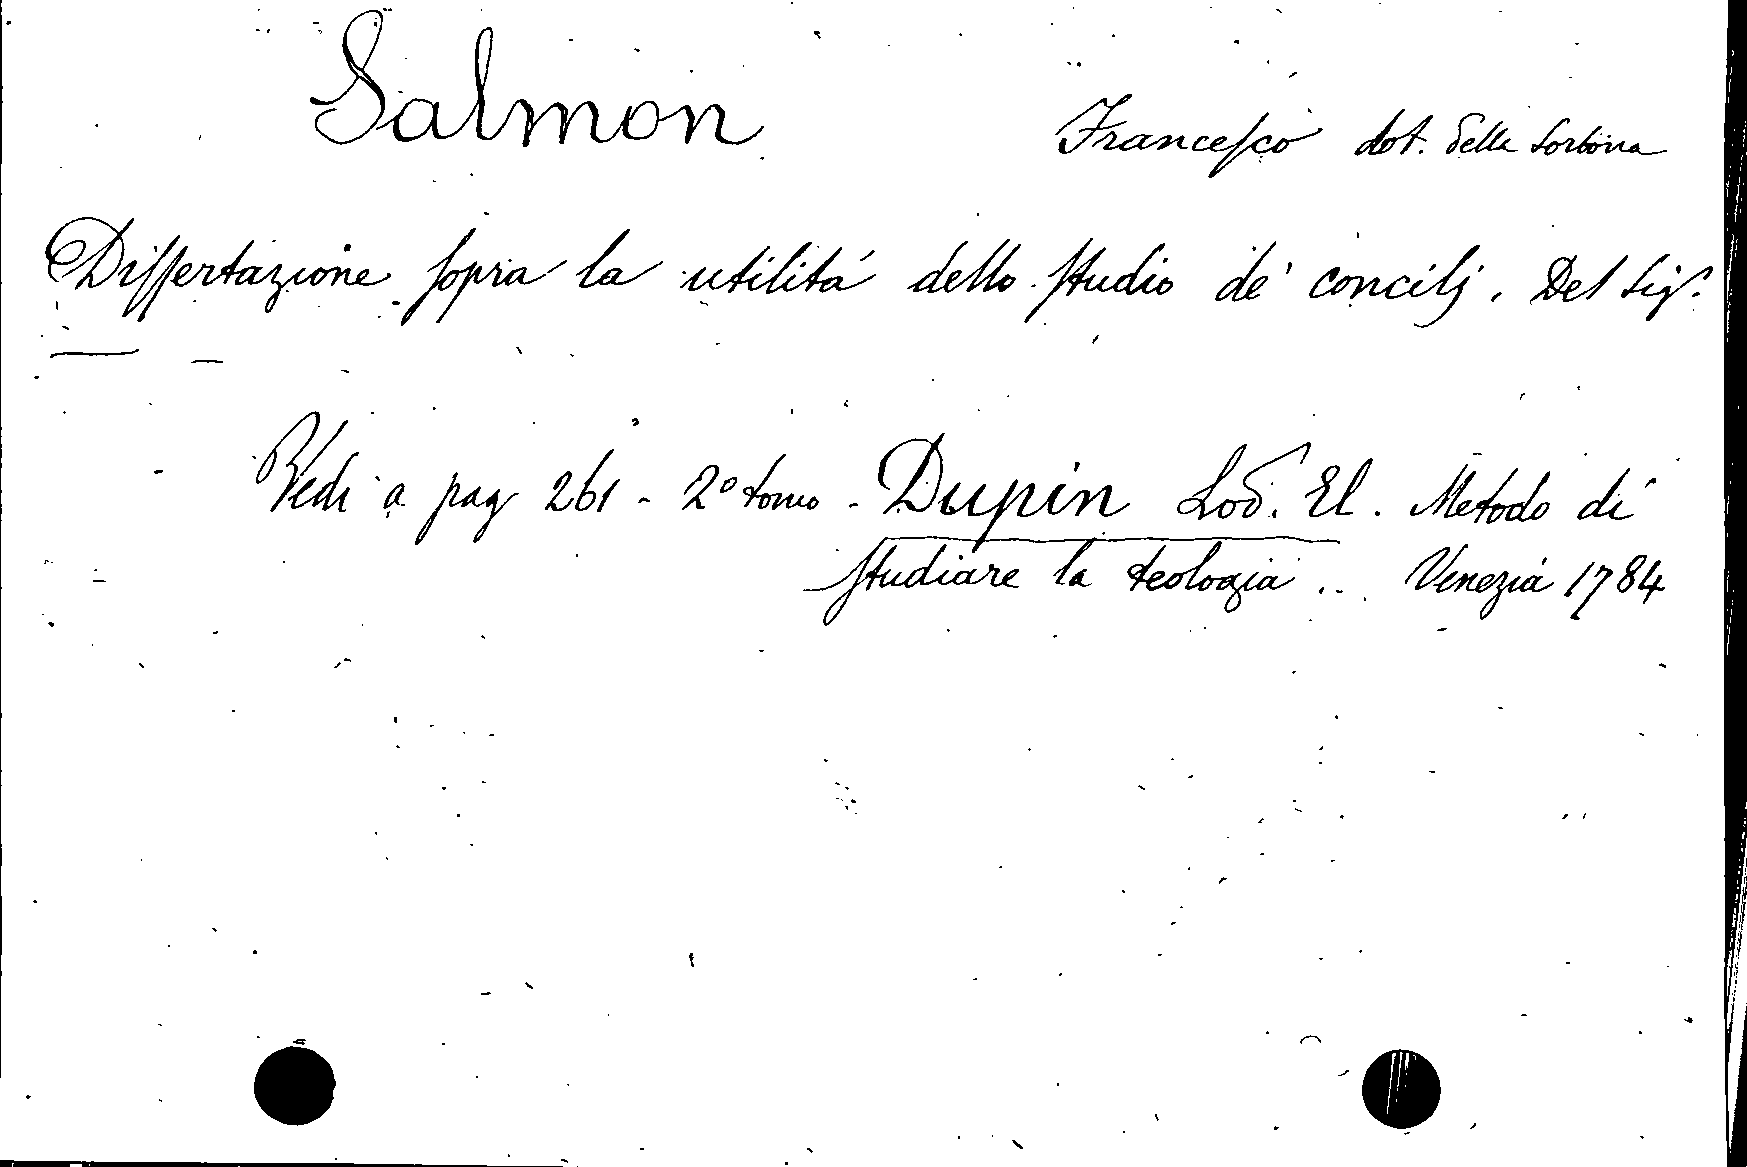 Salmon Francesco dot. della Sorbona
Dissertazione sopra la utilitá dello studio de' concilj. Del Sigr.
Vedi a pag 261 - 2º tomo - Dupin Lod. El. Metodo di
studiare la teologia ... Venezia 1784